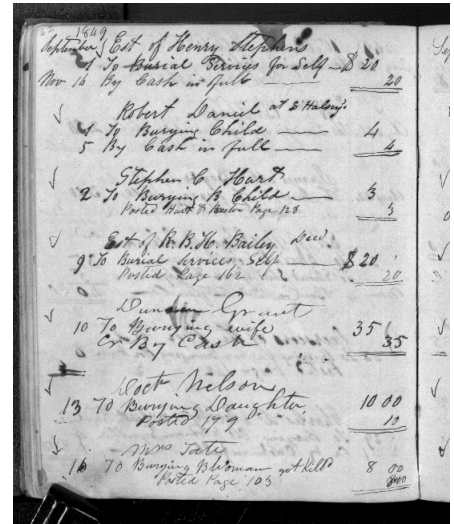 1849
September Est of Henry Stephens
1 To Burial Services for Self $20
Nov 16 By Cash in full 20
Robert Daniel at S Halsey's
4 To Burying Child 4
5 By Cash in full 4
Stephen C. Hart
2 To Burying B Child 3
Posted Hart & Page 128 3
Est of R. B. H. Bailey Decd
9 To Burial Services Self $20
Posted Page 162 20
Duncan Grant
10 To Burying wife 35
Cr By Cash 35
Doct Nelson
13 To Burying Daughter 10 00
Posted 179 10
Mrs Tate
16 To Burying B Woman got killd 8 00
Posted Page 103